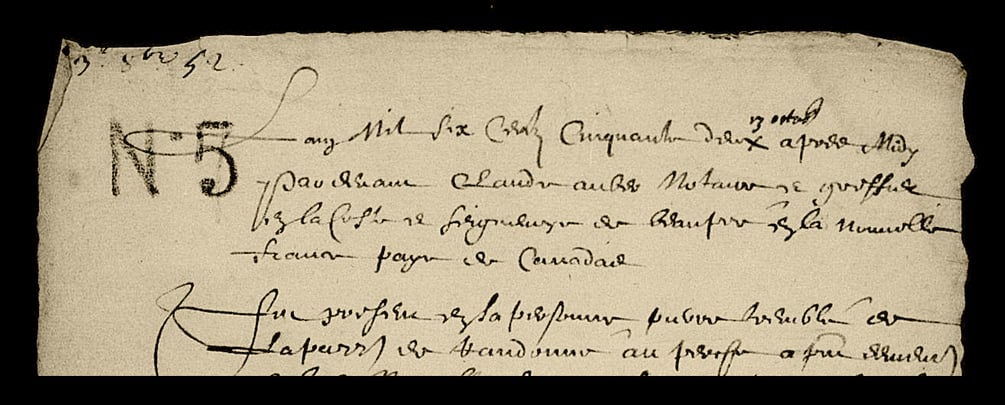 8bre 52
N° 5
13 octob
Lan Mil Six Centz Cinquante deux apres Midy
Pardevant Claude auber Notaire et greffier
en la Coste et seigneurye de beaupré en la nouvelle
france paye de Canadae
fut present en sa personne pierre tremblé de
la de Randonne au perche a pnt demeurt